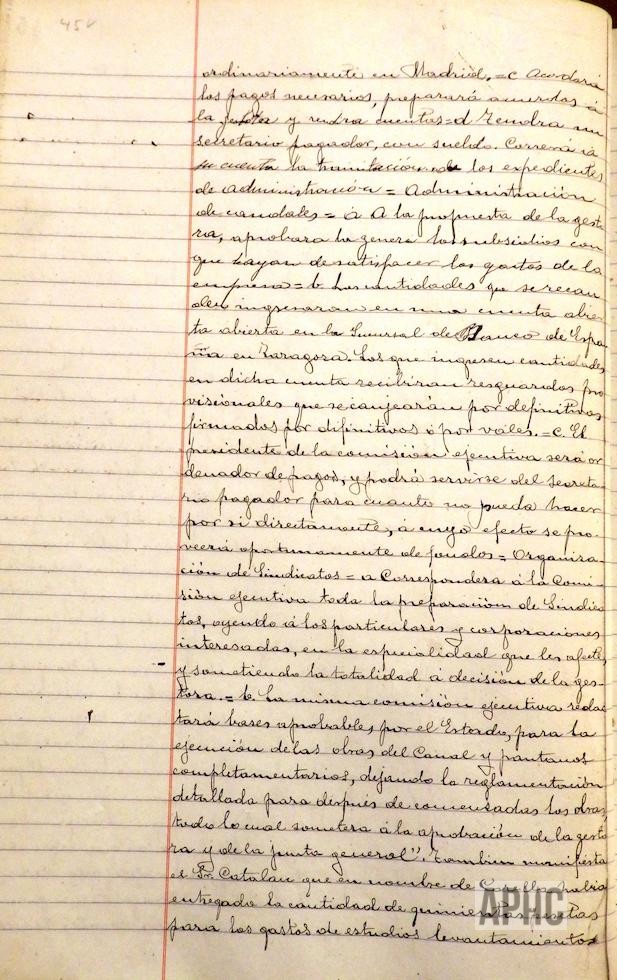 45v
ordinariamente en Madrid. = c Acordará
los pagos necesarios, preparará acuerdos á
la y rendra cuentas = d Tendra un
secretario pagador, con sueldo. Correrá á
su cuenta la tramitación de los expedientes
de administración = Administración
de caudales = a A la propuesta de la gesto
ra, aprobara la genera los subsidios con
que hayan de satisfacer los gastos de la
empresa = b Las cantidades que se recau
den ingresaran en una cuenta abier
ta abierta en la Sucursal de Banco de Espa-
ña en Zaragoza. Los que ingresen cantidades
en dicha cuenta recibiran resguardos pro
visionales que se canjearán por definitivos
firmados por difinitivos ó por vales. = c. El
presidente de la comisión ejecutiva será or
denador de pagos, y podrá servirse del secreta
rio pagador para cuanto no pueda hacer
por si directamente, á cuyo efecto se pro-
veerá oportunamente de fondos = Organiza-
ción de Sindicatos = a Corresponderá á la Comi
sión ejecutiva toda la preparación de Sindica
tos, oyendo á los particulares y corporaciones
interesadas, en la especialidad que les afecte,
y sometiendo la totalidad á decisión de la ges-
tora. = b. La misma comisión ejecutiva redac
tará bases aprobables, por el Estado, para la
ejecución de las obras del Canal y pantanos
completamentarios, dejando la reglamentación
detallada para después de comensadas las obras,
todo lo cual sometera á la aprobación de la gesto
ra y de la junta general". Tambien manifiesta
el Sr. Catalan que en nombre de había
entregado la cantidad de quinientas pesetas
para los gastos de estudios levantamientos
APHC